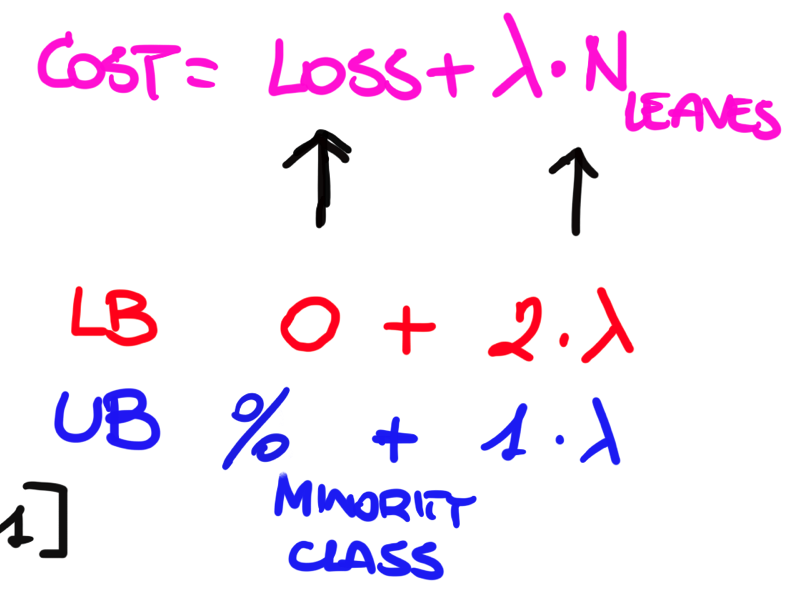 COST = LOSS + λ · N LEAVES
LB 0 + 2 · λ
UB % + 1 · λ
MINORITY
CLASS
1]